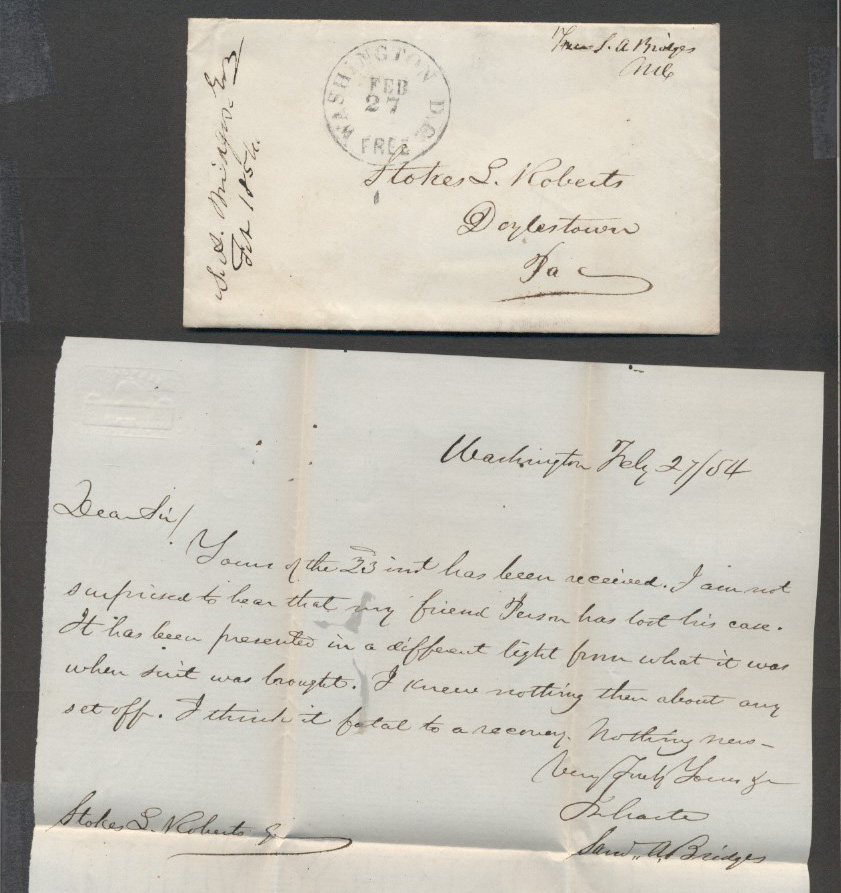 S. A. Bridges. Esq
Feb 1854.
WASHINGTON D.C.
FEB
27
FREE
S. A Bridges
MC
Stokes L. Roberts
Doylestown
Pa
Washington Feby 27/54
Dear Sir/
Yours of the 23 inst has been received. I am not
surprised to hear that my friend Person has lost his case.
It has been presented in a different light from what it was
when suit was brought. I knew nothing then about any
set off. I think it fatal to a recovery. Nothing new -
Very Truly Yours &c
In haste
Saml. A. Bridges
Stokes L. Roberts Esq